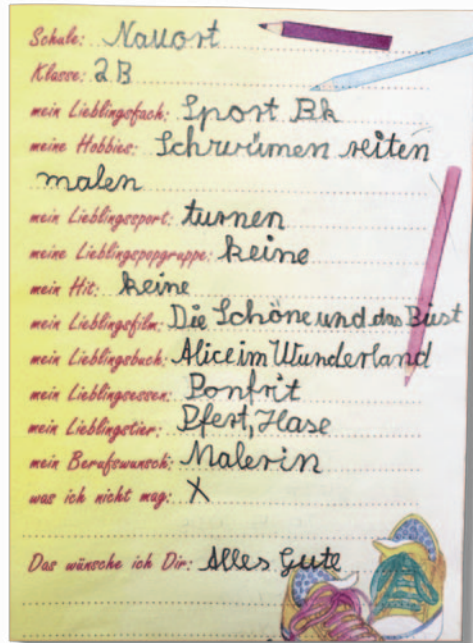 Schule: Nauort
Klasse: 2B
mein Lieblingsfach: Sport Bk
meine Hobbies: Schwümen reiten
malen
mein Lieblingssport: turnen
meine Lieblingspopgruppe: keine
mein Hit: keine
mein Lieblingsfilm: Die Schöne und das Biest
mein Lieblingsbuch: Alice im Wunderland
mein Lieblingsessen: Ponfrit
mein Lieblingstier: Pfert, Hase
mein Berufswunsch: Malerin
was ich nicht mag: X
Das wünsche ich Dir: Alles Gute